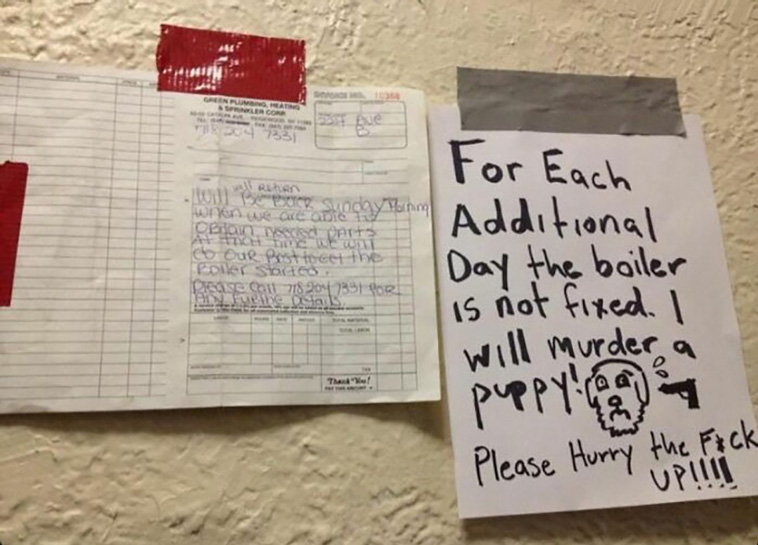 SERVICE NO. 10368
GREEN PLUMBING, HEATING
& SPRINKLER CORP.
718 204 7331
Will Return
Will Be Back Sunday Morning
when we are able to
obtain needed parts
At that time we will
do our best to get the
Boiler started.
Please call 718 204 7331 for
Any Further Details.
TOTAL MATERIAL
TOTAL LABOR
TAX
Thank You!
PAY THIS AMOUNT
For Each
Additional
Day the boiler
is not fixed. I
will murder a
puppy!
Please Hurry the F*ck
UP!!!!